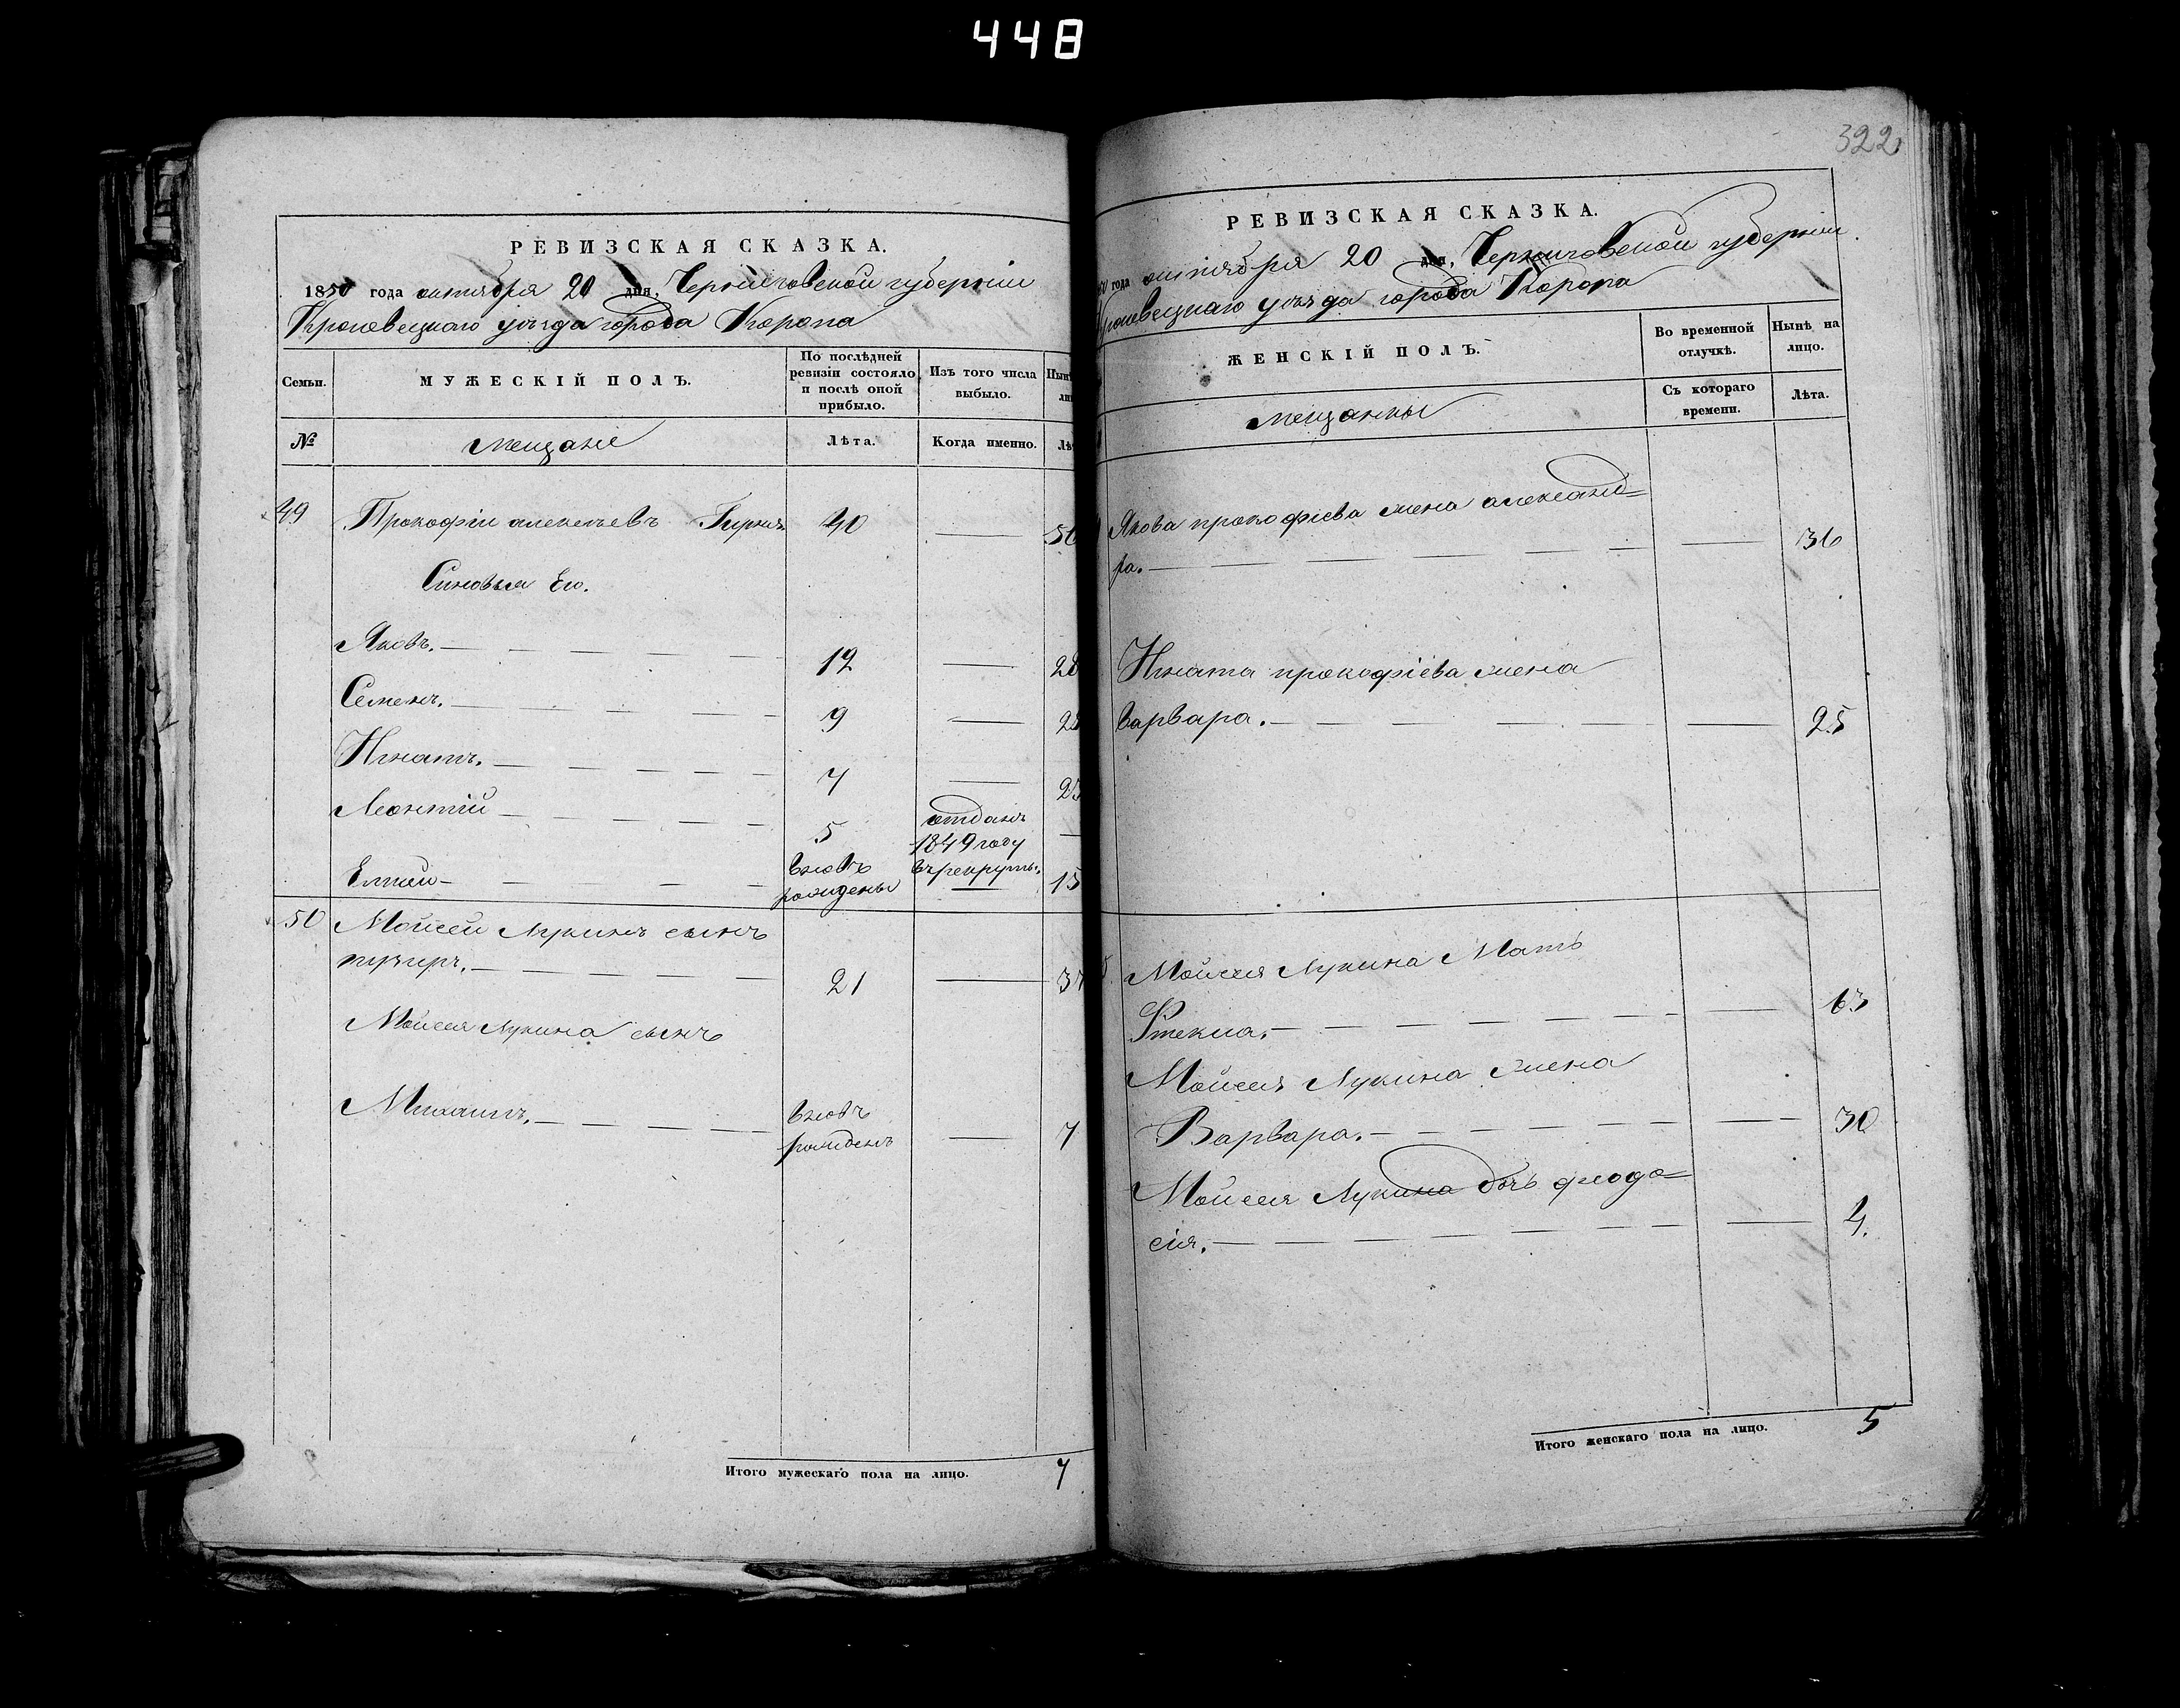 448
РЕВИЗСКАЯ СКАЗКА.
1850 года октября 20 дня, Черниговской губернии
Кролевецкаго уѣзда города Коропа
Семьи.
МУЖЕСКІЙ ПОЛЪ.
По послѣдней ревизіи состояло и послѣ оной прибыло.
Изъ того числа выбыло.
№
мещане
Лѣта.
Когда именно.
49 Прокофій алексеевъ 40 — 56
Синовья Его.
Яковъ. — 12 — 28
Семенъ. — 9 — 25
Игнатъ. — 7 — 23
Леонтій — 5 отданъ 1849 году въ рекруты. —
вновь рождены — 15
50 Мойсей Лукинъ сынъ
21 — 37
Мойсея Лукина сынъ
Михаилъ. — вновь рожденъ — 7
Итого мужескаго пола на лицо. 7
322
РЕВИЗСКАЯ СКАЗКА.
года октября 20 дня, Черниговской губернии
Кролевецкаго уѣзда города Коропа
ЖЕНСКІЙ ПОЛЪ.
Во временной отлучкѣ.
Нынѣ на лицо.
мещанки
Съ котораго времени.
Лѣта.
Якова прокофіева жена александ=
ра. — — 36
Игната прокофіева жена
варвара. — — 25
Мойсея Лукина Мать
— — 63
Мойсея Лукина жена
Варвара. — — 30
Мойсея Лукина дочь феодо=
сія. — — 4.
Итого женскаго пола на лицо. 5